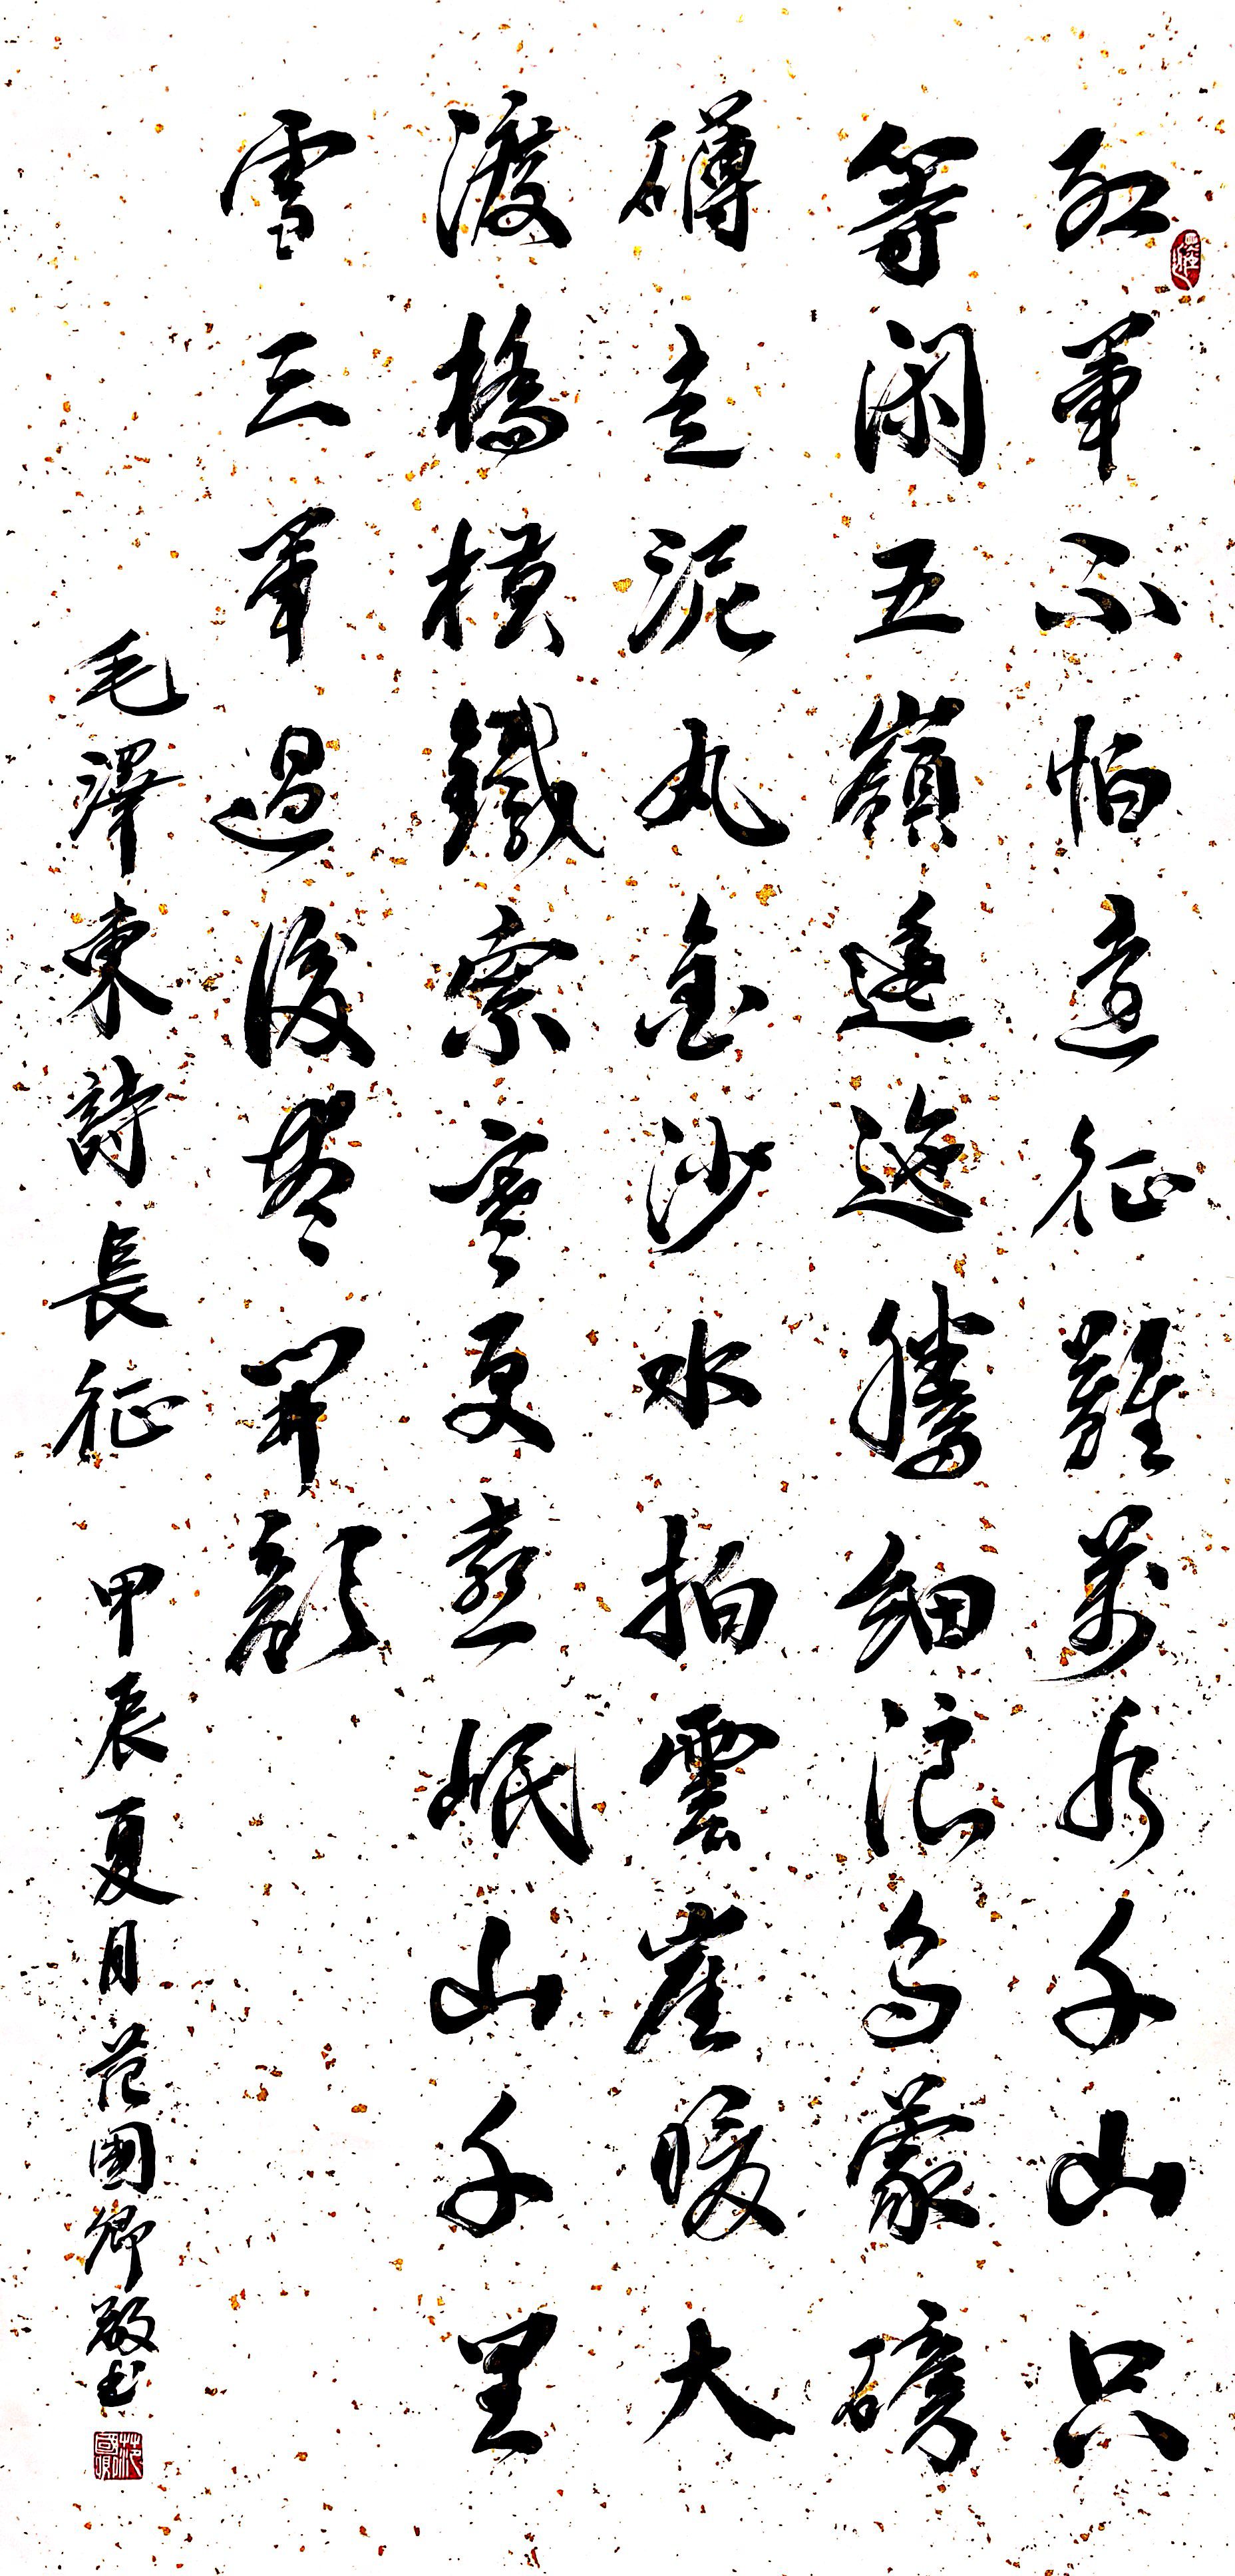 紅軍不怕遠征難萬水千山只
等閑五嶺逶迤騰細浪烏蒙磅
礴走泥丸金沙水拍雲崖暖大
渡橋橫鐵索寒更喜岷山千里
雪三軍過後盡開顏
毛澤東詩長征 甲辰夏月范國卿敬书